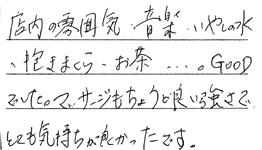 店内の雰囲気 音楽 いやしの水
、抱きまくら、お茶…。GOOD
でした。マッサージもちょうど良い強さで
とても気持ちが良かったです。